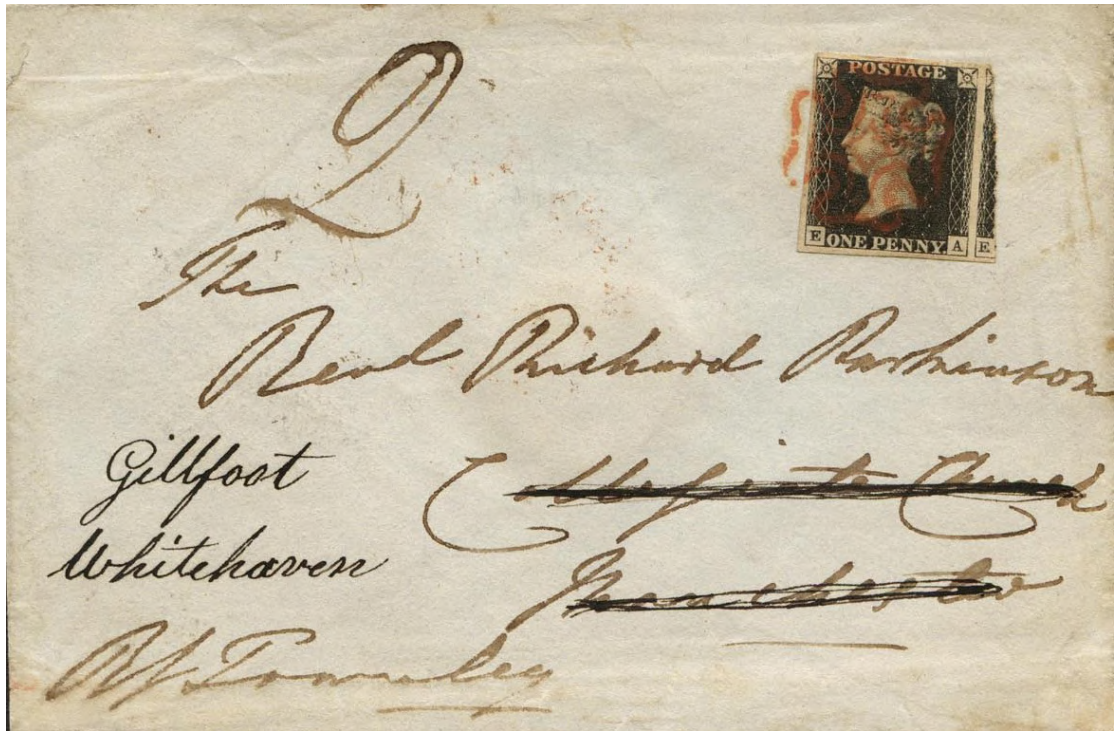 POSTAGE
E ONE PENNY. A E
2
The
Revd Richard Parkinson
Collegiate Church
Manchester
Gillfoot
Whitehaven
Townley